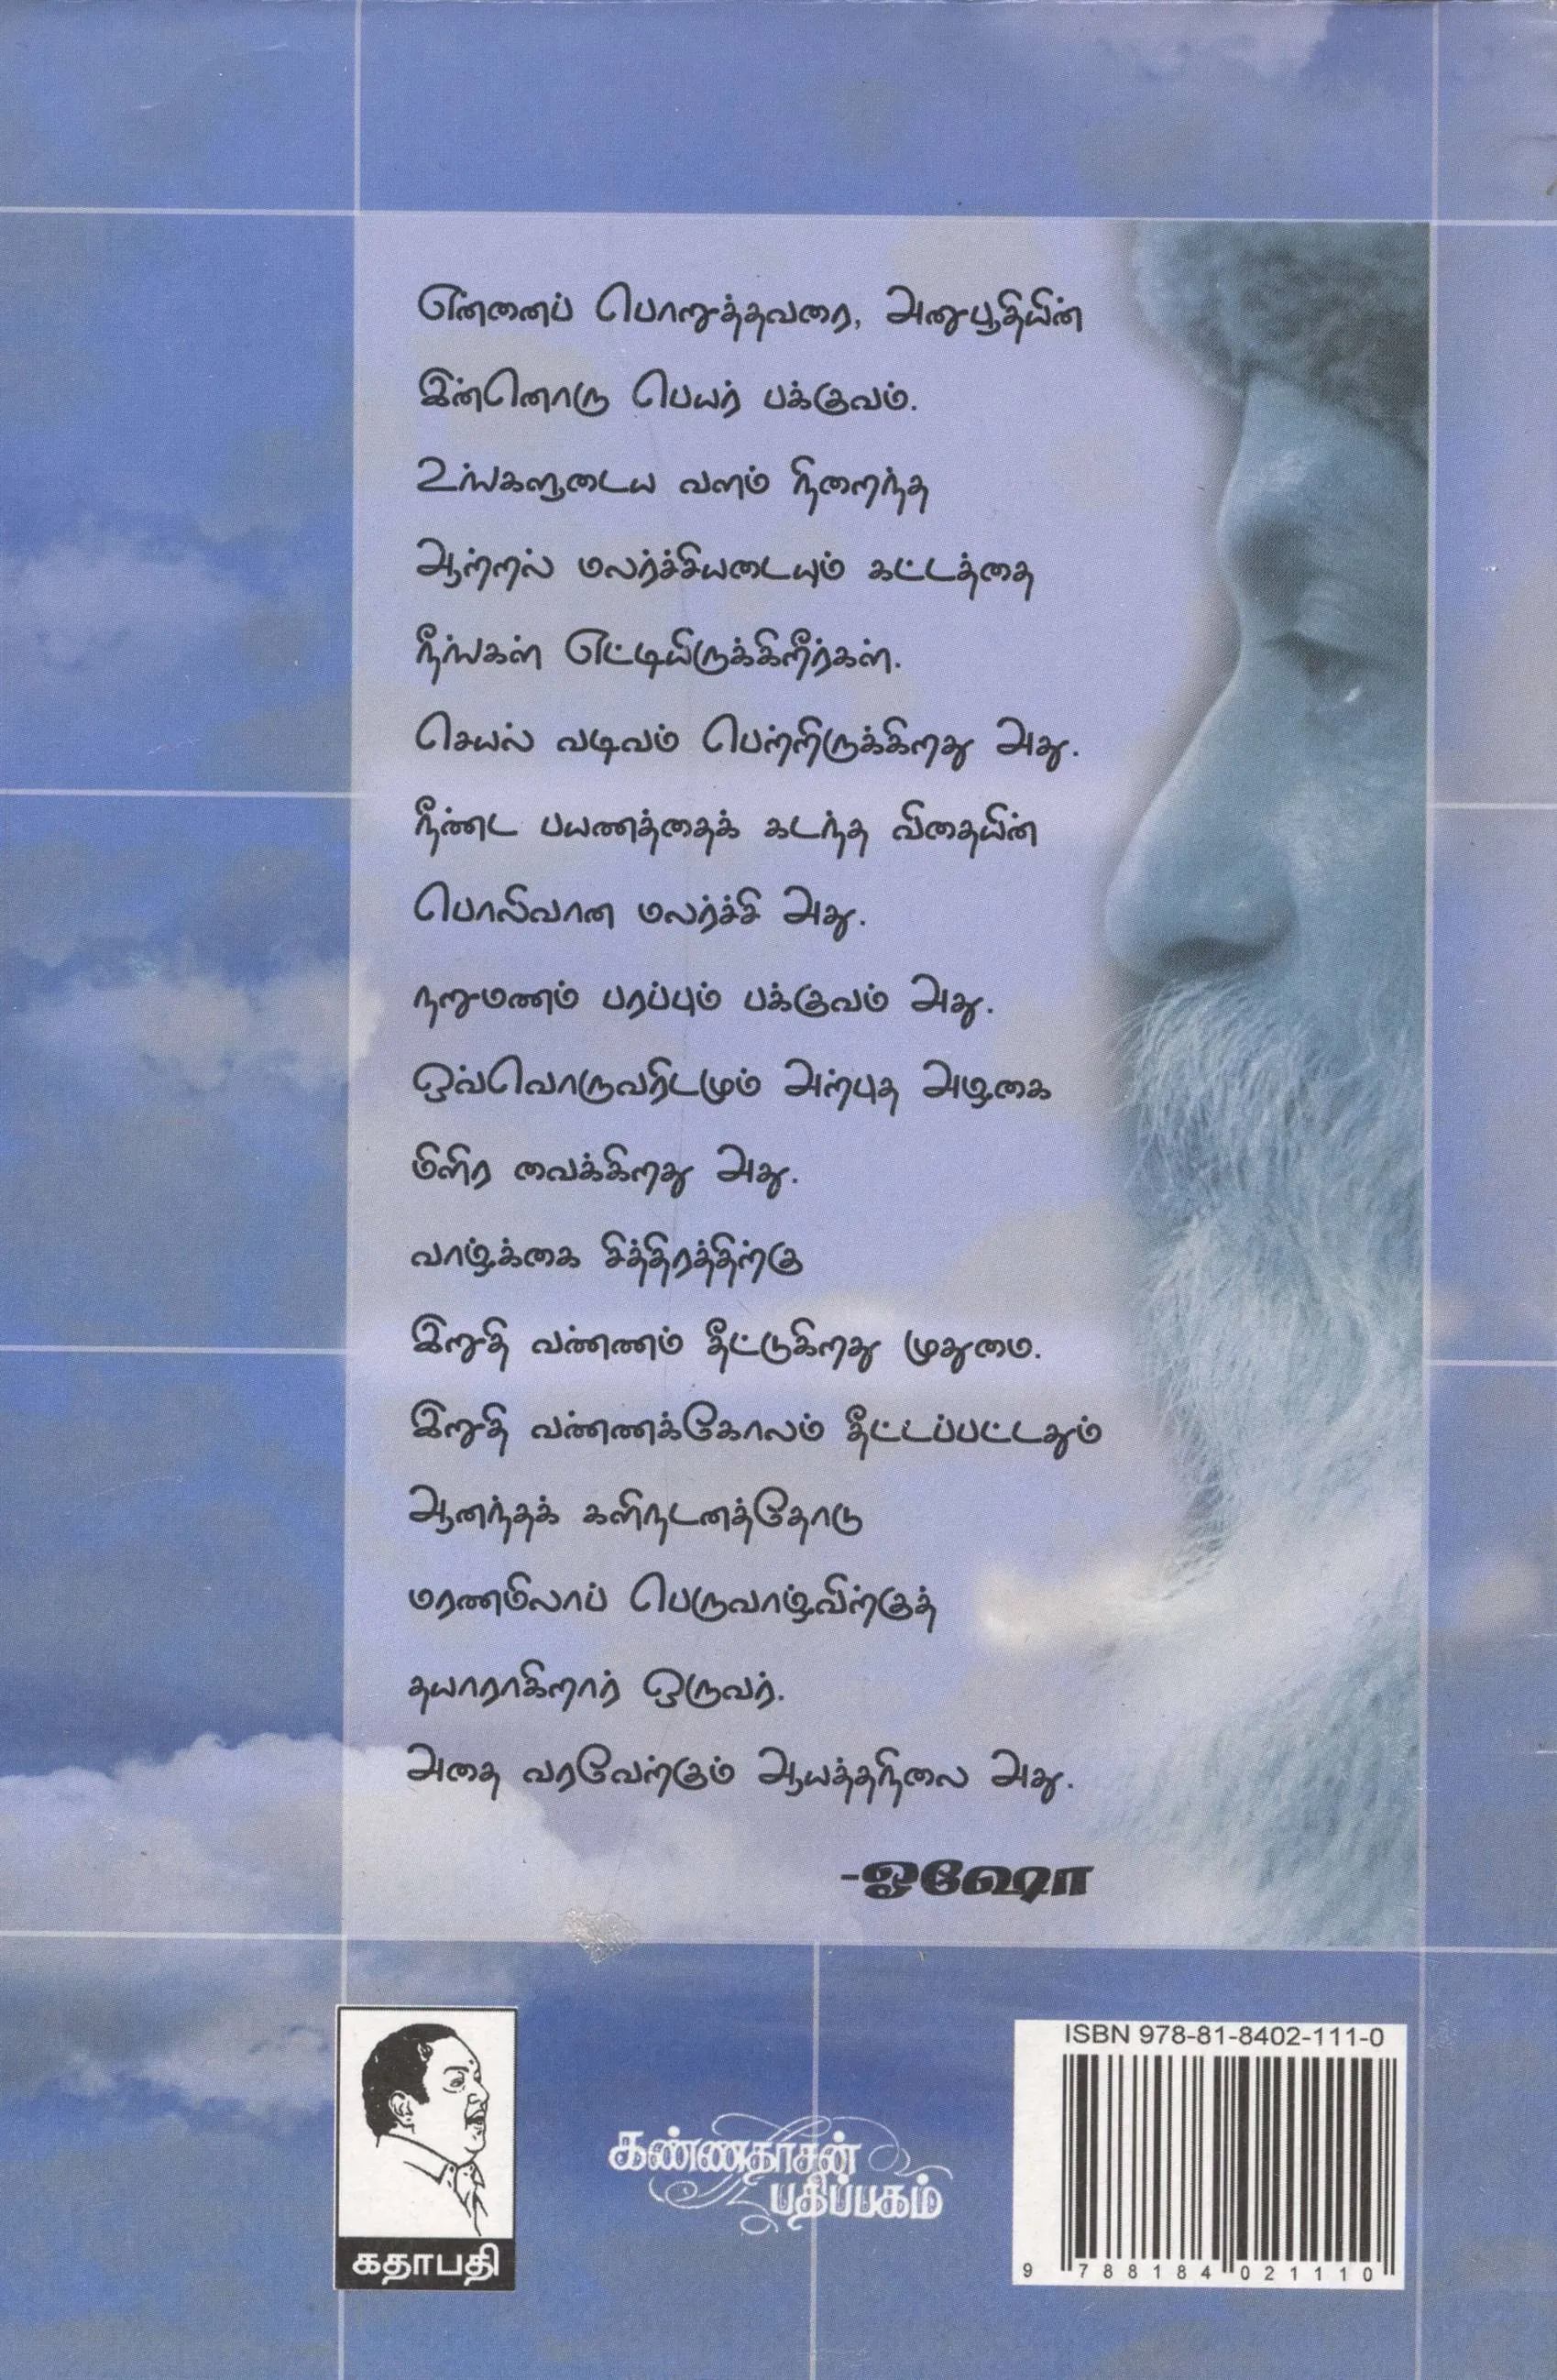 என்னைப் பொறுத்தவரை, அனுபூதியின்
இன்னொரு பெயர் பக்குவம்.
உங்களுடைய வளம் நிறைந்த
ஆற்றல் மலர்ச்சியடையும் கட்டத்தை
நீங்கள் எட்டியிருக்கிறீர்கள்.
செயல் வடிவம் பெற்றிருக்கிறது அது.
நீண்ட பயணத்தைக் கடந்த விதையின்
பொலிவான மலர்ச்சி அது.
நறுமணம் பரப்பும் பக்குவம் அது.
ஒவ்வொருவரிடமும் அற்புத அழகை
மிளிர வைக்கிறது அது.
வாழ்க்கை சித்திரத்திற்கு
இறுதி வண்ணம் தீட்டுகிறது முதுமை.
இறுதி வண்ணக்கோலம் தீட்டப்பட்டதும்
ஆனந்தக் களிநடனத்தோடு
மரணமிலாப் பெருவாழ்விற்குத்
தயாராகிறார் ஒருவர்.
அதை வரவேற்கும் ஆயத்தநிலை அது.
-ஓஷோ
கதாபதி
கண்ணதாசன்
பதிப்பகம்
ISBN 978-81-8402-111-0
9 788184 021110